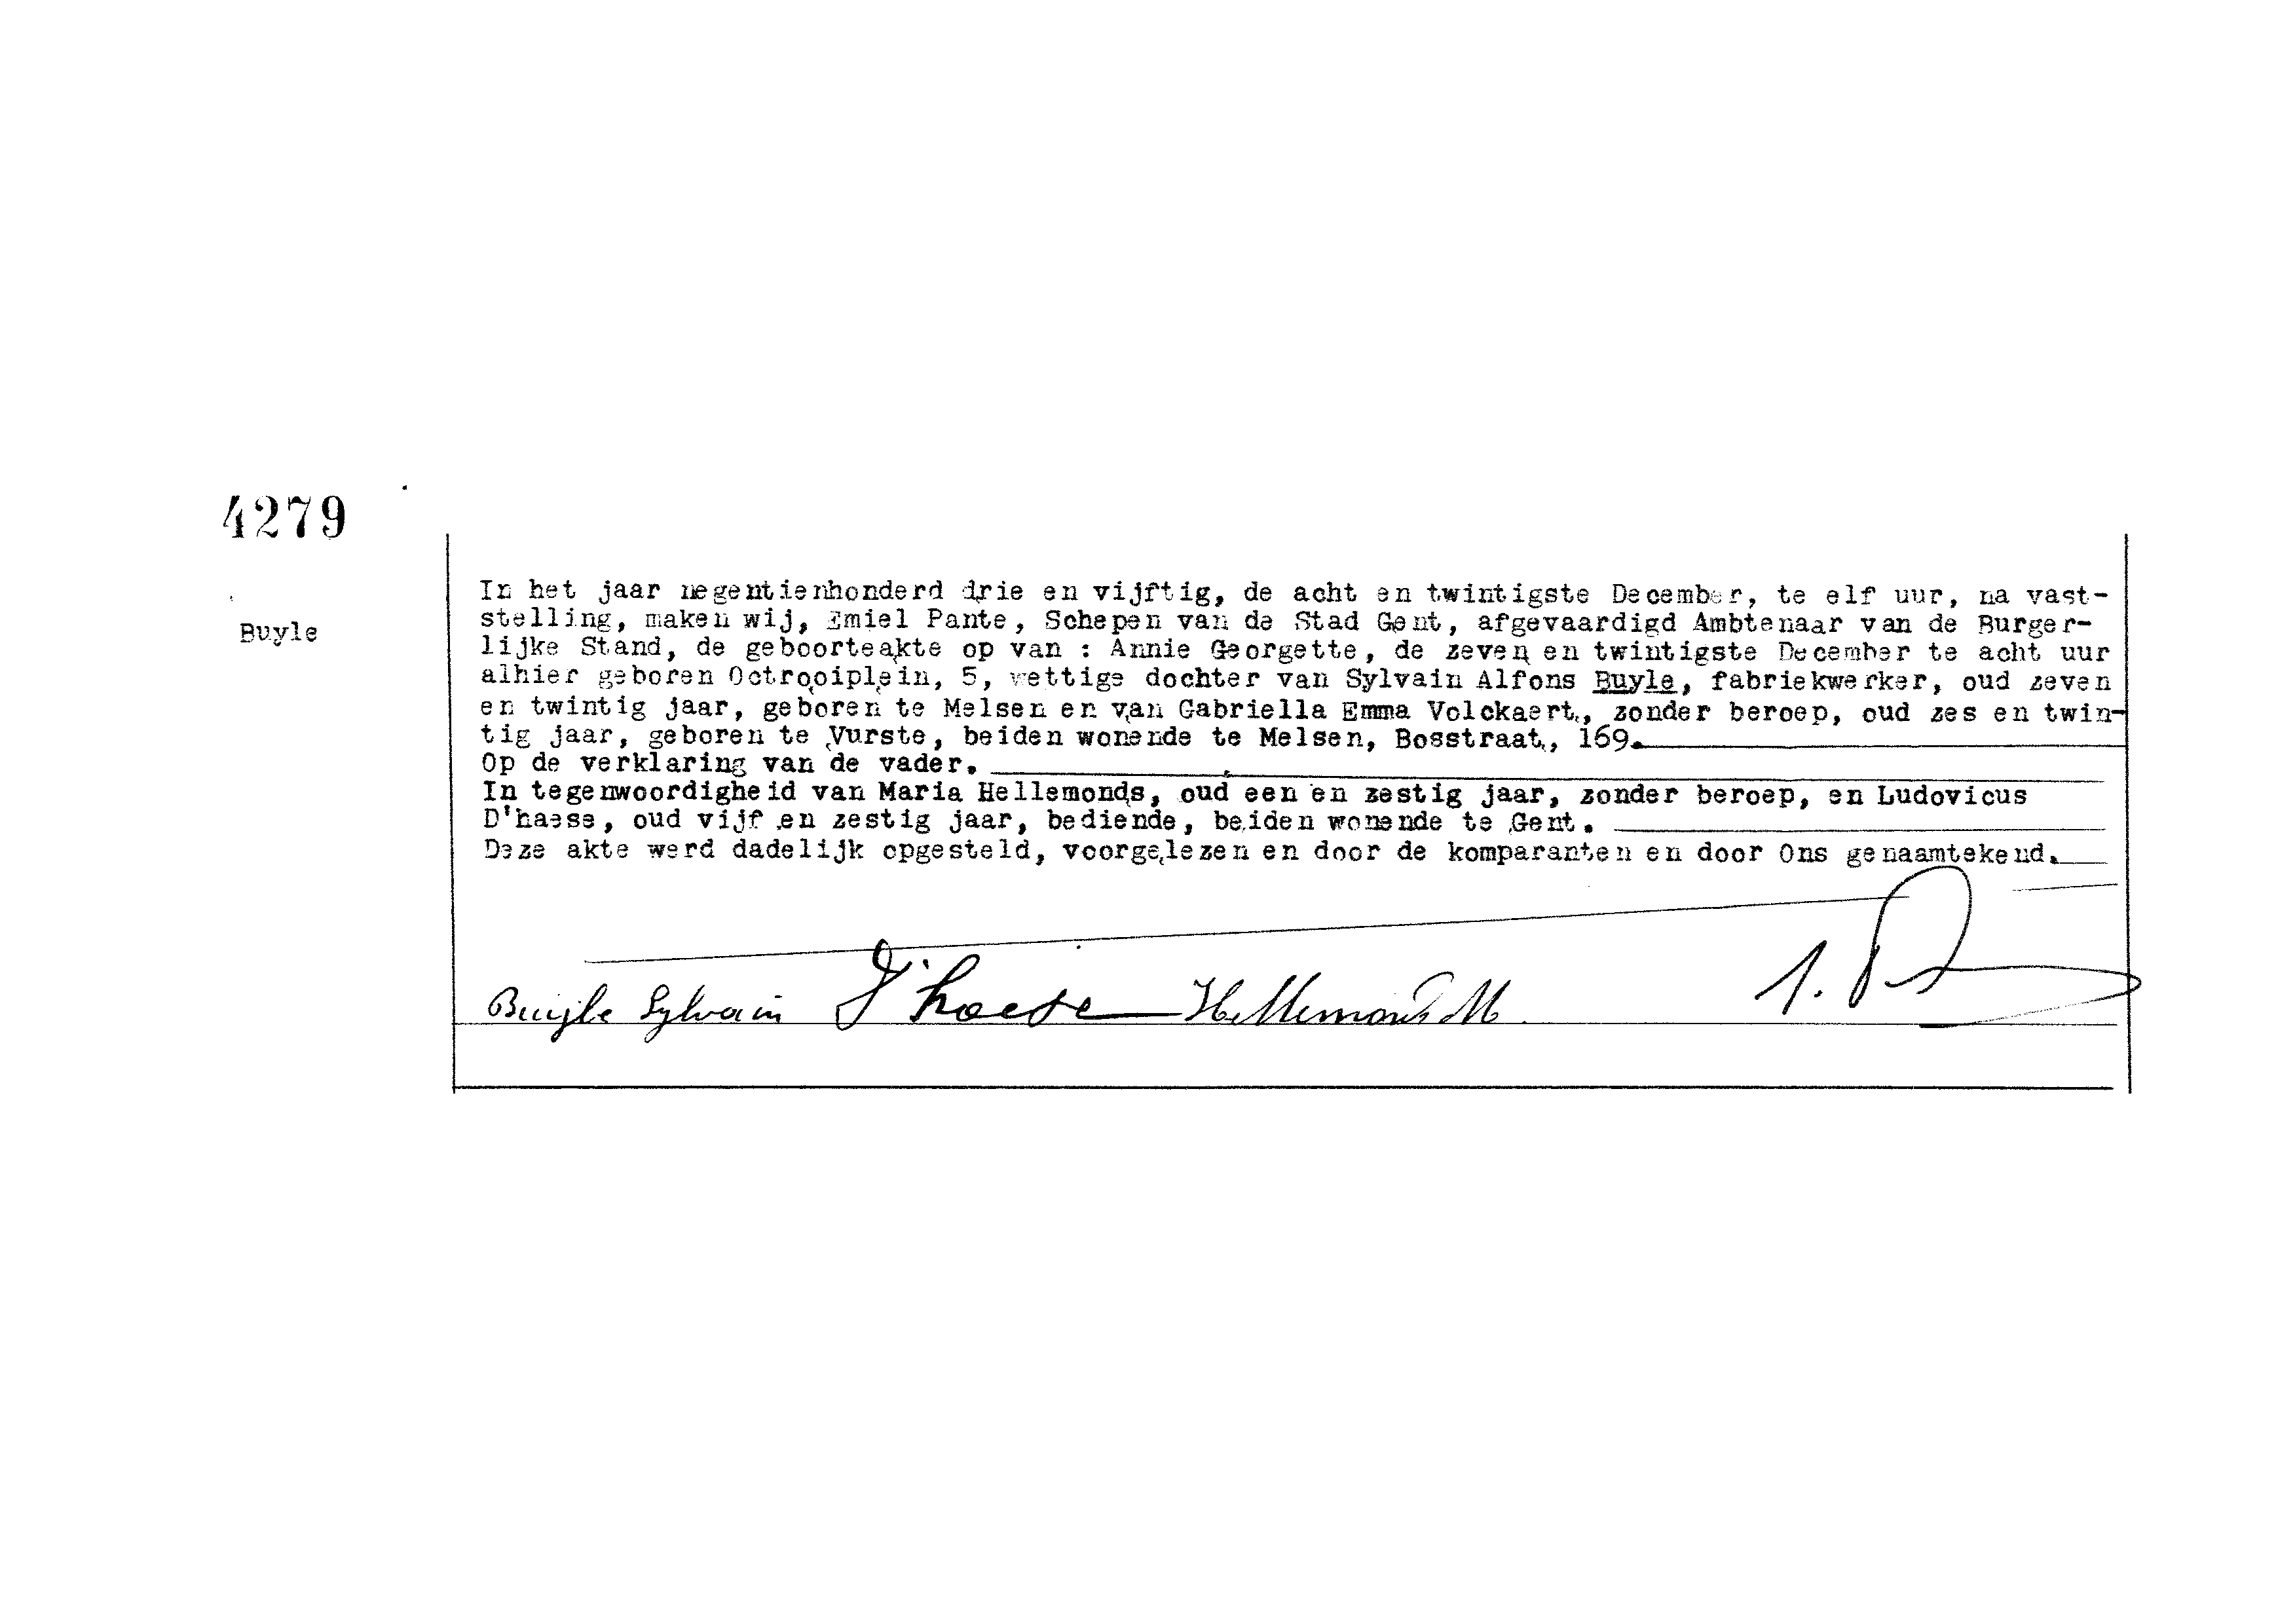 4279
Buyle
In het jaar negentienhonderd drie en vijftig, de acht en twintigste December, te elf uur, na vast-
stelling, maken wij, Emiel Pante, Schepen van de Stad Gent, afgevaardigd Ambtenaar van de Burger-
lijke Stand, de geboorteakte op van : Annie Georgette, de zeven en twintigste December te acht uur
alhier geboren Octrooiplein, 5, wettige dochter van Sylvain Alfons Buyle, fabriekwerker, oud zeven
en twintig jaar, geboren te Melsen en van Gabriella Emma Volckaert, zonder beroep, oud zes en twin-
tig jaar, geboren te Vurste, beiden wonende te Melsen, Bosstraat, 169.
Op de verklaring van de vader.
In tegenwoordigheid van Maria Hellemonds, oud een en zestig jaar, zonder beroep, en Ludovicus
D'haese, oud vijf en zestig jaar, bediende, beiden wonende te Gent.
Deze akte werd dadelijk opgesteld, voorgelezen en door de komparanten en door Ons genaamtekend.
Buijle Sylvain D'haese Hellemonds M.